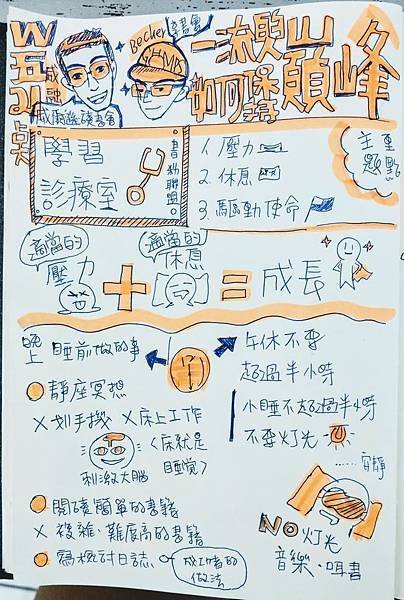 W五21点
Becky
讀書會
一流的人如何保持顛峰
威融
威爾遜讀書會
學習
診療室
書粉聯盟
1. 壓力
2. 休息
3. 驅動使命
主重
題點
適當的
壓力
+
適當的
休息
=
成長
晚上 睡前做的事
靜座冥想
×划手機 ×床上工作
<床就是
睡覺>
刺激大腦
閱讀簡單的書籍
× 複雜、難度高的書籍
寫檢討日誌
成功者的
做法
午休不要
超過半小時
小睡不超過半小時
不要灯光
......安靜
NO灯光
音樂、唱書